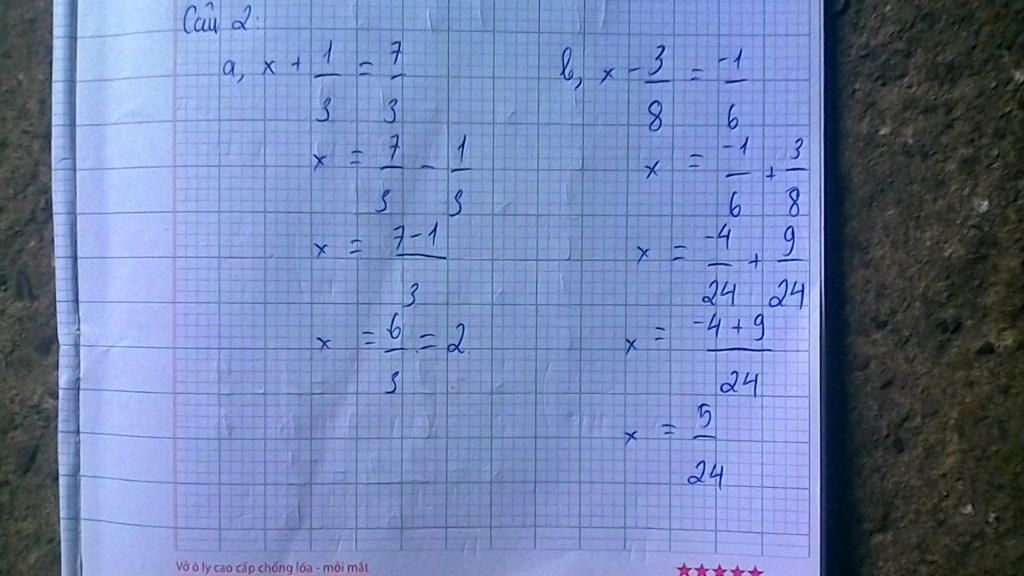 Câu 2:
a, x + 1/3 = 7/3
x = 7/3 - 1/3
x = 7-1/3
x = 6/3 = 2
b, x - 3/8 = -1/6
x = -1/6 + 3/8
x = -4/24 + 9/24
x = -4+9/24
x = 5/24
Vở ô ly cao cấp chống lóa - mỏi mắt